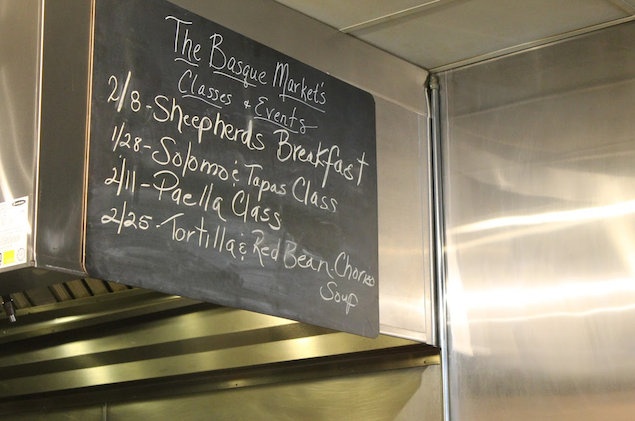 The Basque Market's
Classes & Events
2/8-Sheepherds Breakfast
1/28-Solomo & Tapas Class
2/11-Paella Class
2/25-Tortilla & Red Bean-Chorizo
Soup